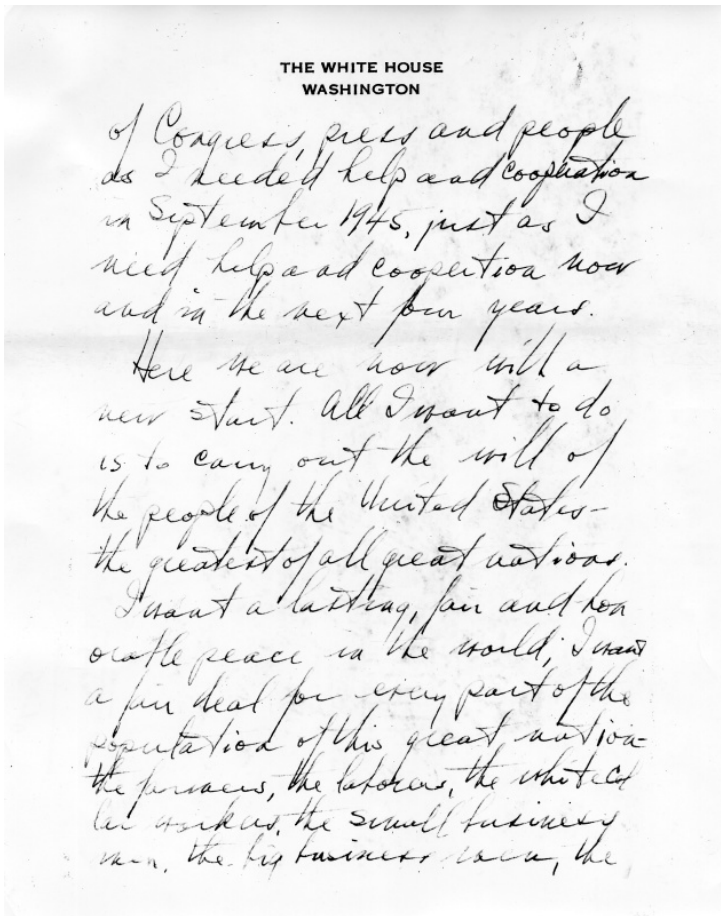 THE WHITE HOUSE
WASHINGTON
of Congress, press and people
as I needed help and cooperation
in September 1945, just as I
need help aad coopertion now
and in the next four years.
Here we are now with a
new start. All I want to do
is to carry out the will of
the people of the United States-
the greatest of all great nations.
I want a lasting, fair and hon
orable peace in the world; I want
a fair deal for every part of the
population of this great nation-
the farmers, the laborers, the white col
lar workers, the small business
men, the big business men, the